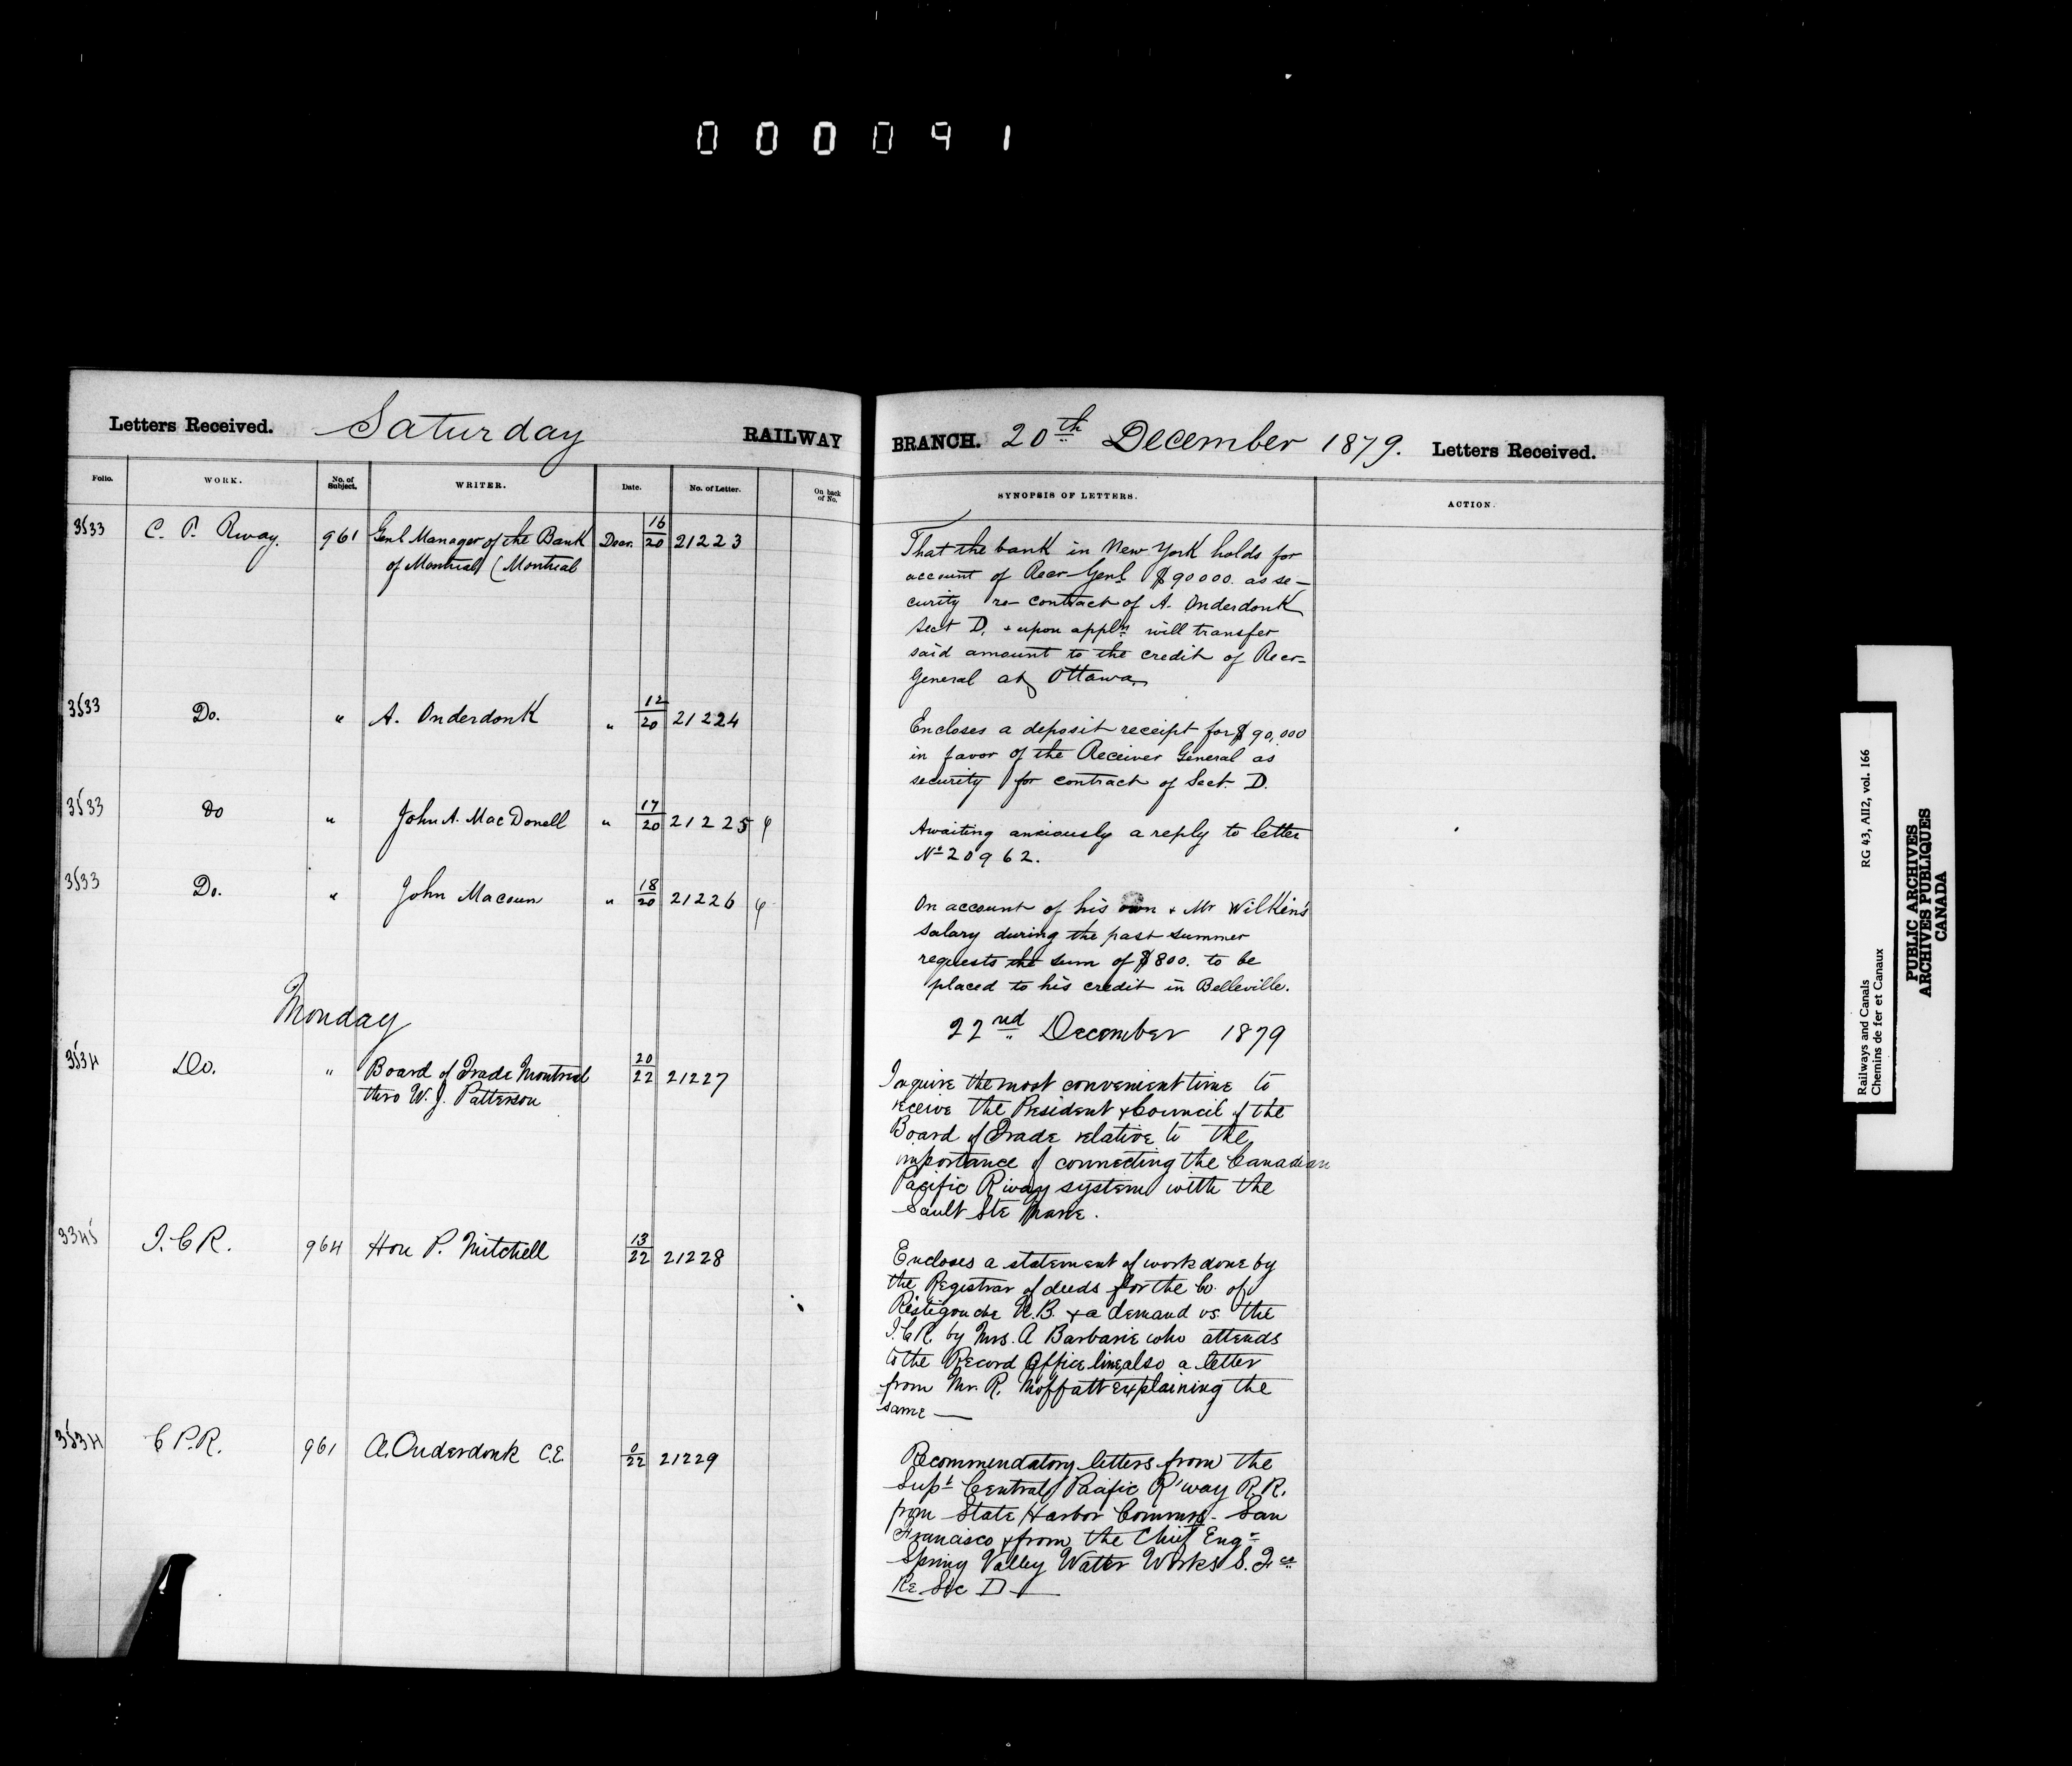 000091
Letters Received. Saturday RAILWAY BRANCH. 20th December 1879. Letters Received.
Folio. WORK. No. of Subject. WRITER. Date. No. of Letter. On back of No. SYNOPSIS OF LETTERS. ACTION.
3533 C. P. Rway. 961 Genl Manager of the Bank Decr. 16/20 21223
of Montreal (Montreal
That the bank in New York holds for
account of Recr-Genl $90000. as se-
curity re- contract of A. Onderdonk
Sect D. & upon appln will transfer
said amount to the credit of Recr-
General at Ottawa
3533 Do. " A. Onderdonk " 12/20 21224
Encloses a deposit receipt for $90,000
in favor of the Receiver General as
security for contract of Sect. D.
3533 do " John A. MacDonell " 17/20 21225
Awaiting anxiously a reply to letter
No 20962.
3533 Do. " John Macoun " 18/20 21226
On account of his own & Mr Wilkin's
salary during the past summer
requests the sum of $800. to be
placed to his credit in Belleville.
Monday 22nd December 1879
3534 Do. " Board of Trade Montreal 20/22 21227
thro W. J. Patterson
Inquire the most convenient time to
receive the President & Council of the
Board of Trade relative to the
importance of connecting the Canadian
Pacific Rway system with the
Sault Ste Marie.
3345 I.C.R. 964 Hon P. Mitchell 13/22 21228
Encloses a statement of work done by
the Registrar of deeds for the Co. of
Restigouche N.B. & a demand vs. the
I.C.R. by Mrs. A Barbarie who attends
to the Record Office line, also a letter
from Mr. R. Moffatt explaining the
same —
3534 C P.R. 961 A. Onderdonk C.E. 0/22 21229
Recommendatory letters from the
Supt Central Pacific R'way R.R.
from State Harbor Commrs. San
Francisco & from the Chief Engr
Spring Valley Water Works S. Fco
Re Sec D —
Railways and Canals RG 43, AII2, vol. 166
Chemins de fer et Canaux
PUBLIC ARCHIVES
ARCHIVES PUBLIQUES
CANADA